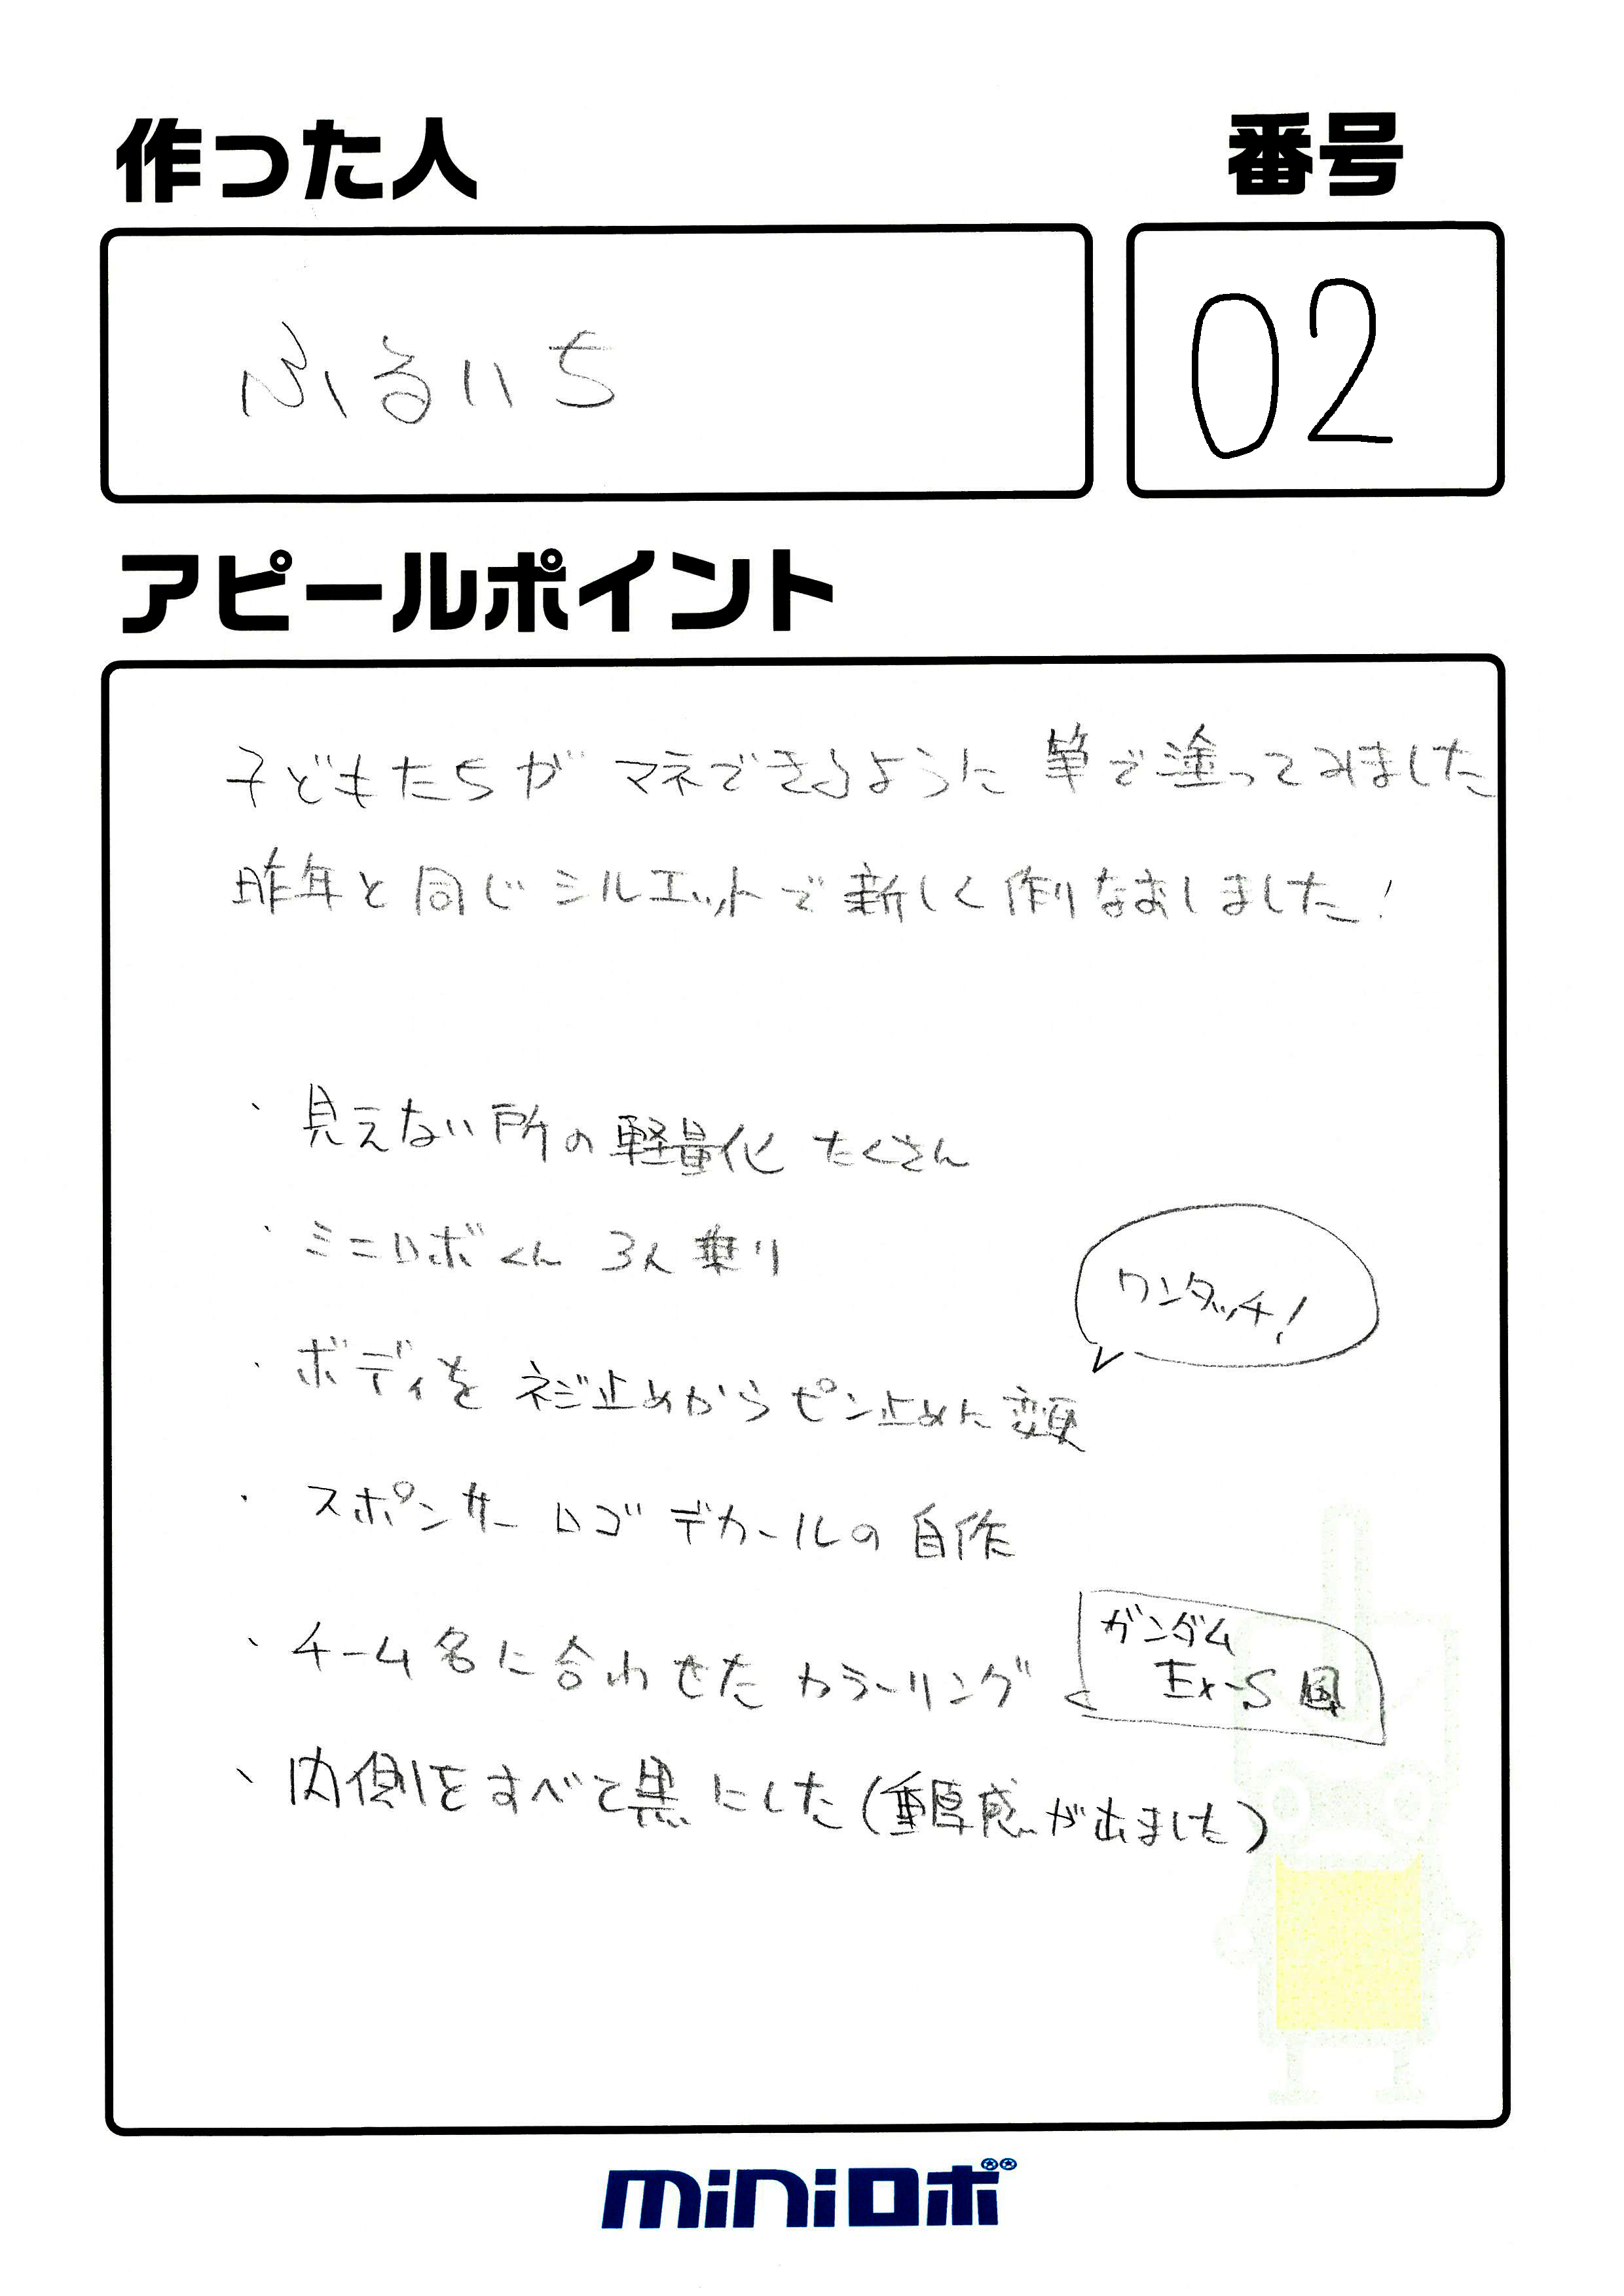 作った人
番号
ふるいち
02
アピールポイント
子どもたちが マネできるように 筆で塗ってみました
昨年と同じシルエットで新しく作りなおしました!
・見えない所の軽量化 たくさん
・ミニロボくん 3人乗り
ワンタッチ!
・ボディを ネジ止めからピン止めに変更
・スポンサーロゴ デカールの自作
・チーム名に合わせた カラーリング
ガンダム
Ex-S 風
・内側をすべて黒にした(重厚感が出ました)
miniロボ